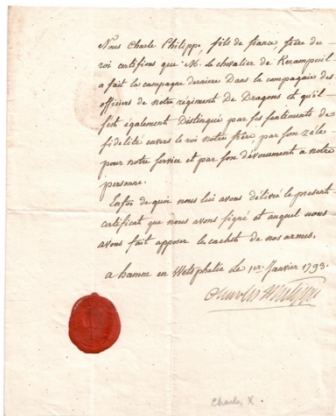 Nous Charle Philippe, fils de france, frère du
roi certifions que M. le chevalier de Kerampuil
a fait la campagne derniere Dans la compagnie des
officiers de notre régiment De Dragons et qu'il
s'est également Distingué par ses sentiments de
fidelité envers le roi notre frère par son zèle
pour notre service et par son dévouement a notre
personne.
Enfoi de quoi nous lui avons délivré le present
certificat que nous avons signé et auquel nous
avons fait apposer le cachet de nos armes.
a hamm en Westphalie le 1er Janvier 1793.
Charles Philippe
Charles X.